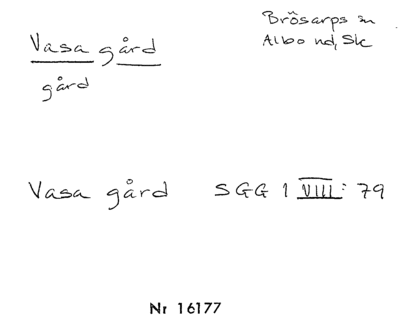 Vasa gård
Brösarps sn
Albo hd, Sk
gård
Vasa gård SGG 1 VIII: 79
Nr 16177